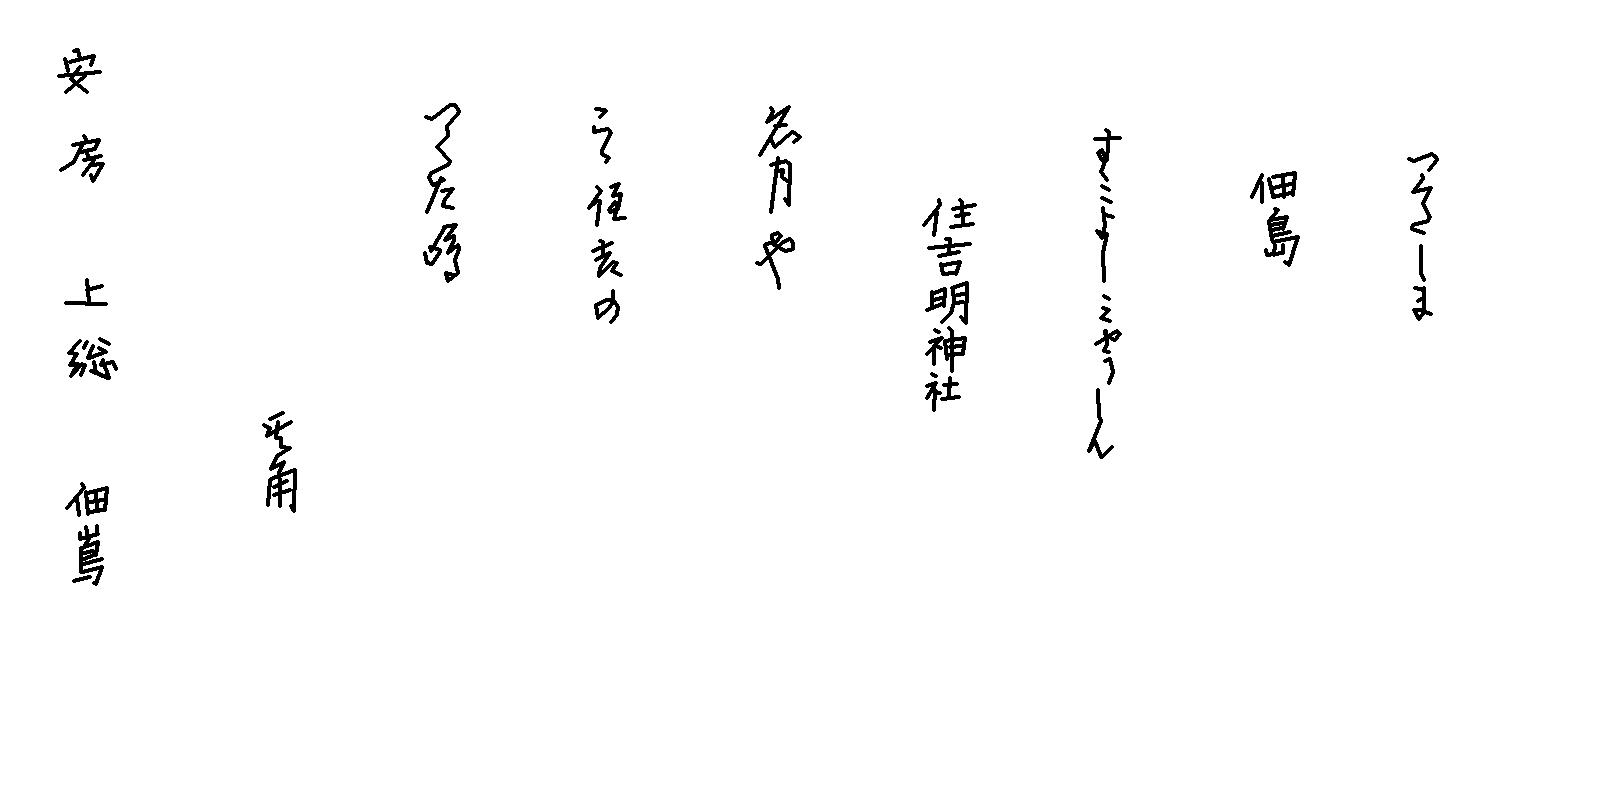 つくたしま
佃島
すみよしみやうしん
住吉明神社
名月や
こゝ住吉の
つくた嶋
其角
安房 上総 佃嶌